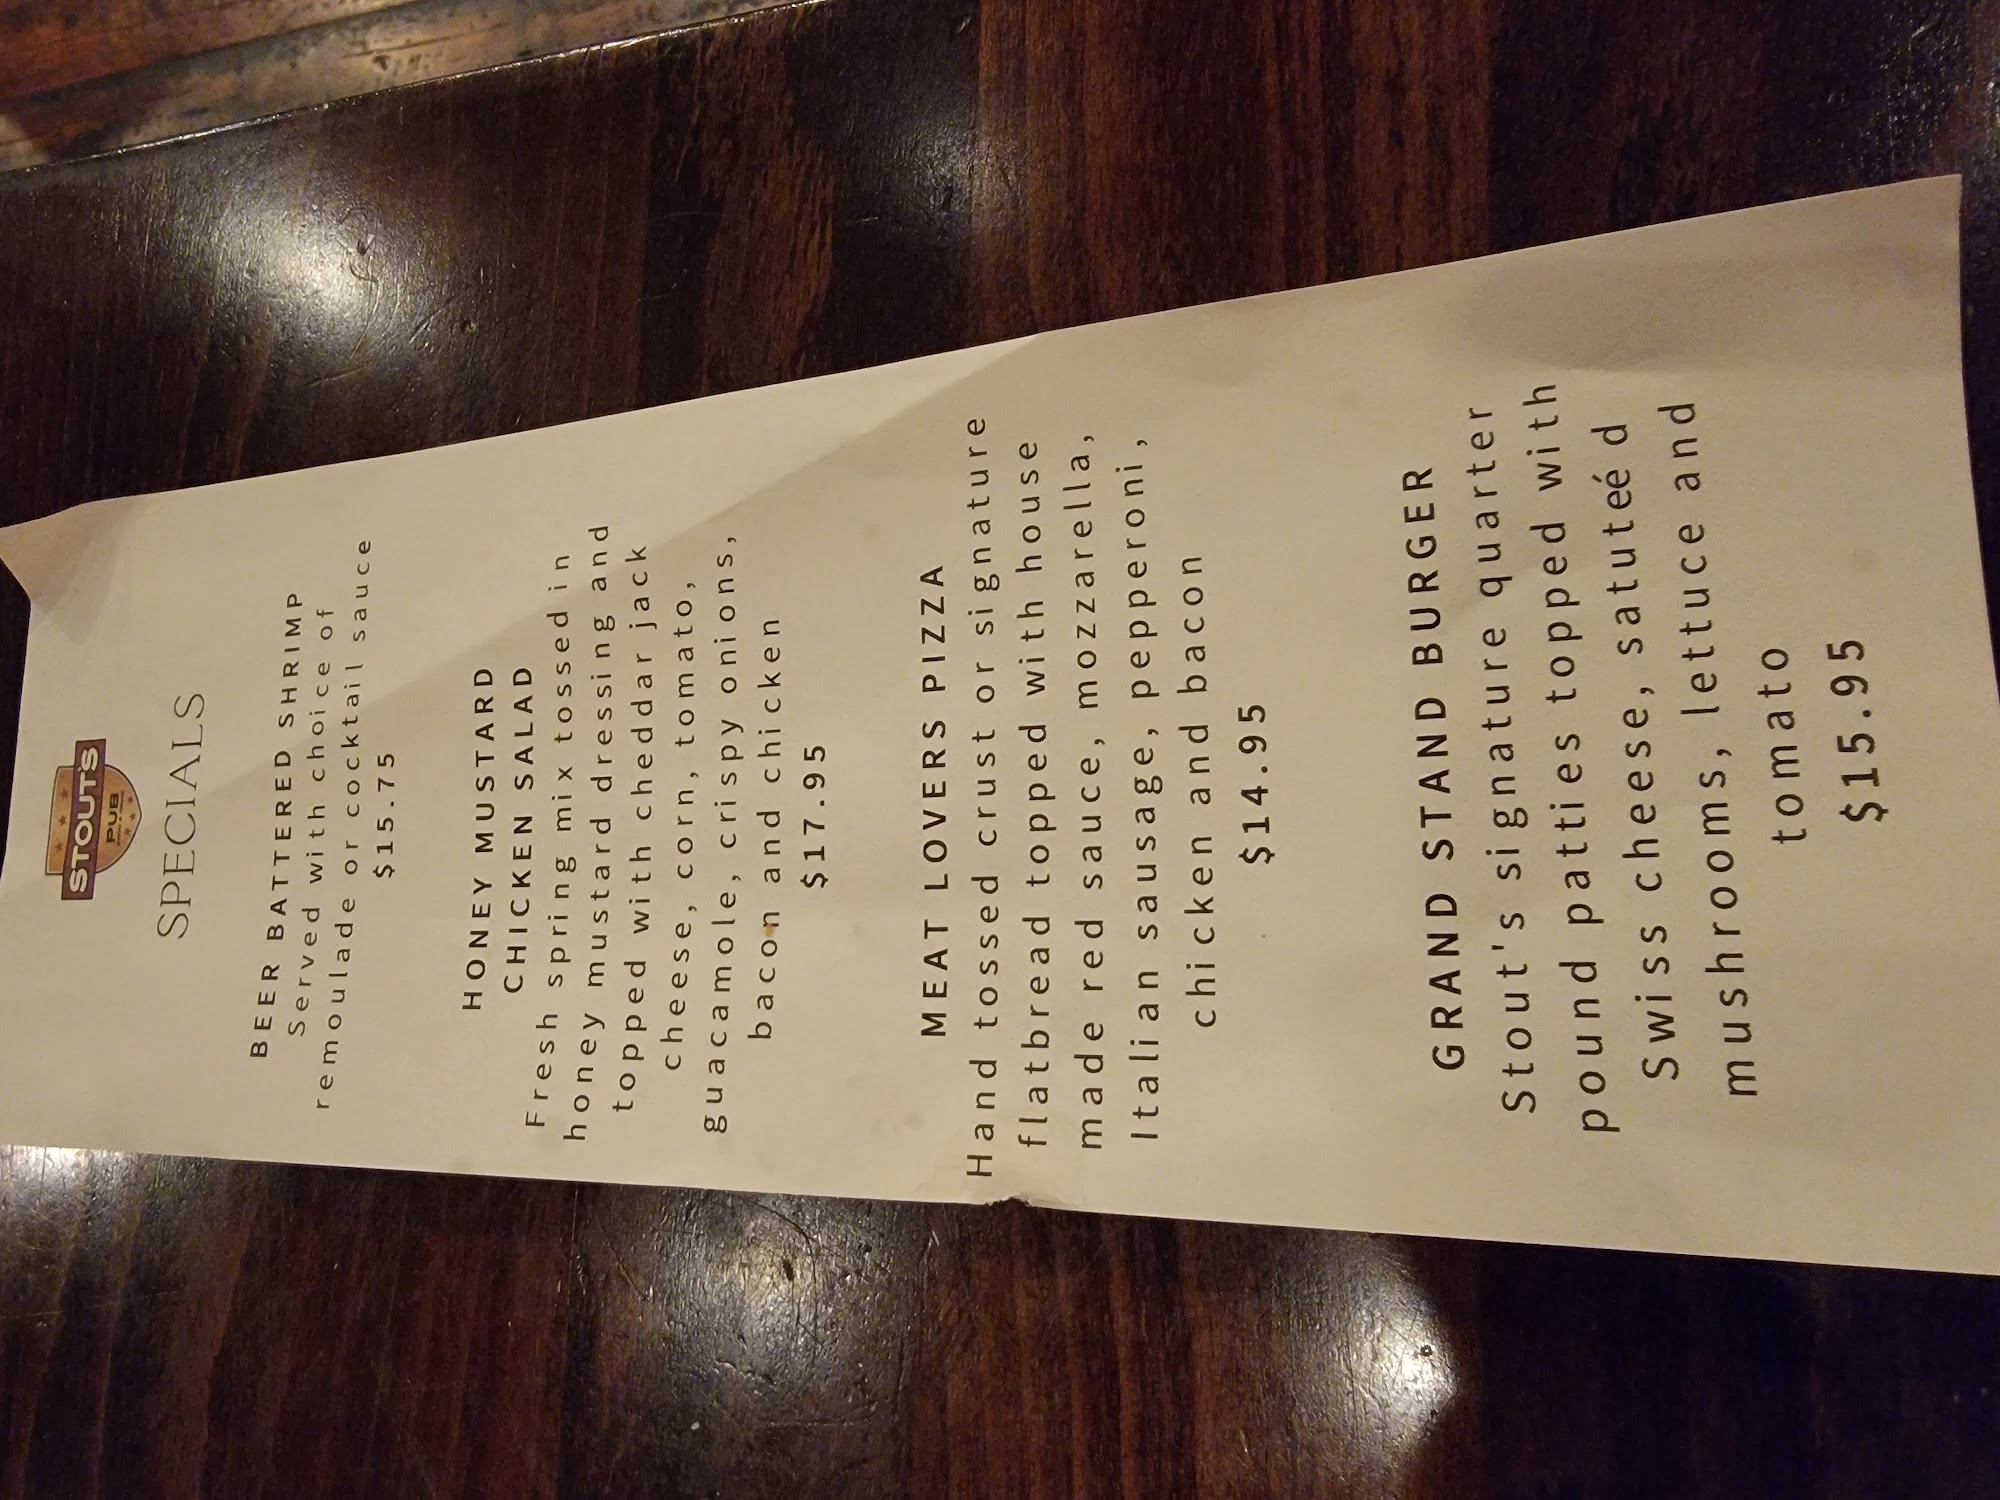 STOUT'S
PUB
SPECIALS
BEER BATTERED SHRIMP
Served with choice of
remoulade or cocktail sauce
$15.75
HONEY MUSTARD
CHICKEN SALAD
Fresh spring mix tossed in
honey mustard dressing and
topped with cheddar jack
cheese, corn, tomato,
guacamole, crispy onions,
bacon and chicken
$17.95
MEAT LOVERS PIZZA
Hand tossed crust or signature
flatbread topped with house
made red sauce, mozzarella,
Italian sausage, pepperoni,
chicken and bacon
$14.95
GRAND STAND BURGER
Stout's signature quarter
pound patties topped with
Swiss cheese, satuteé d
mushrooms, lettuce and
tomato
$15.95